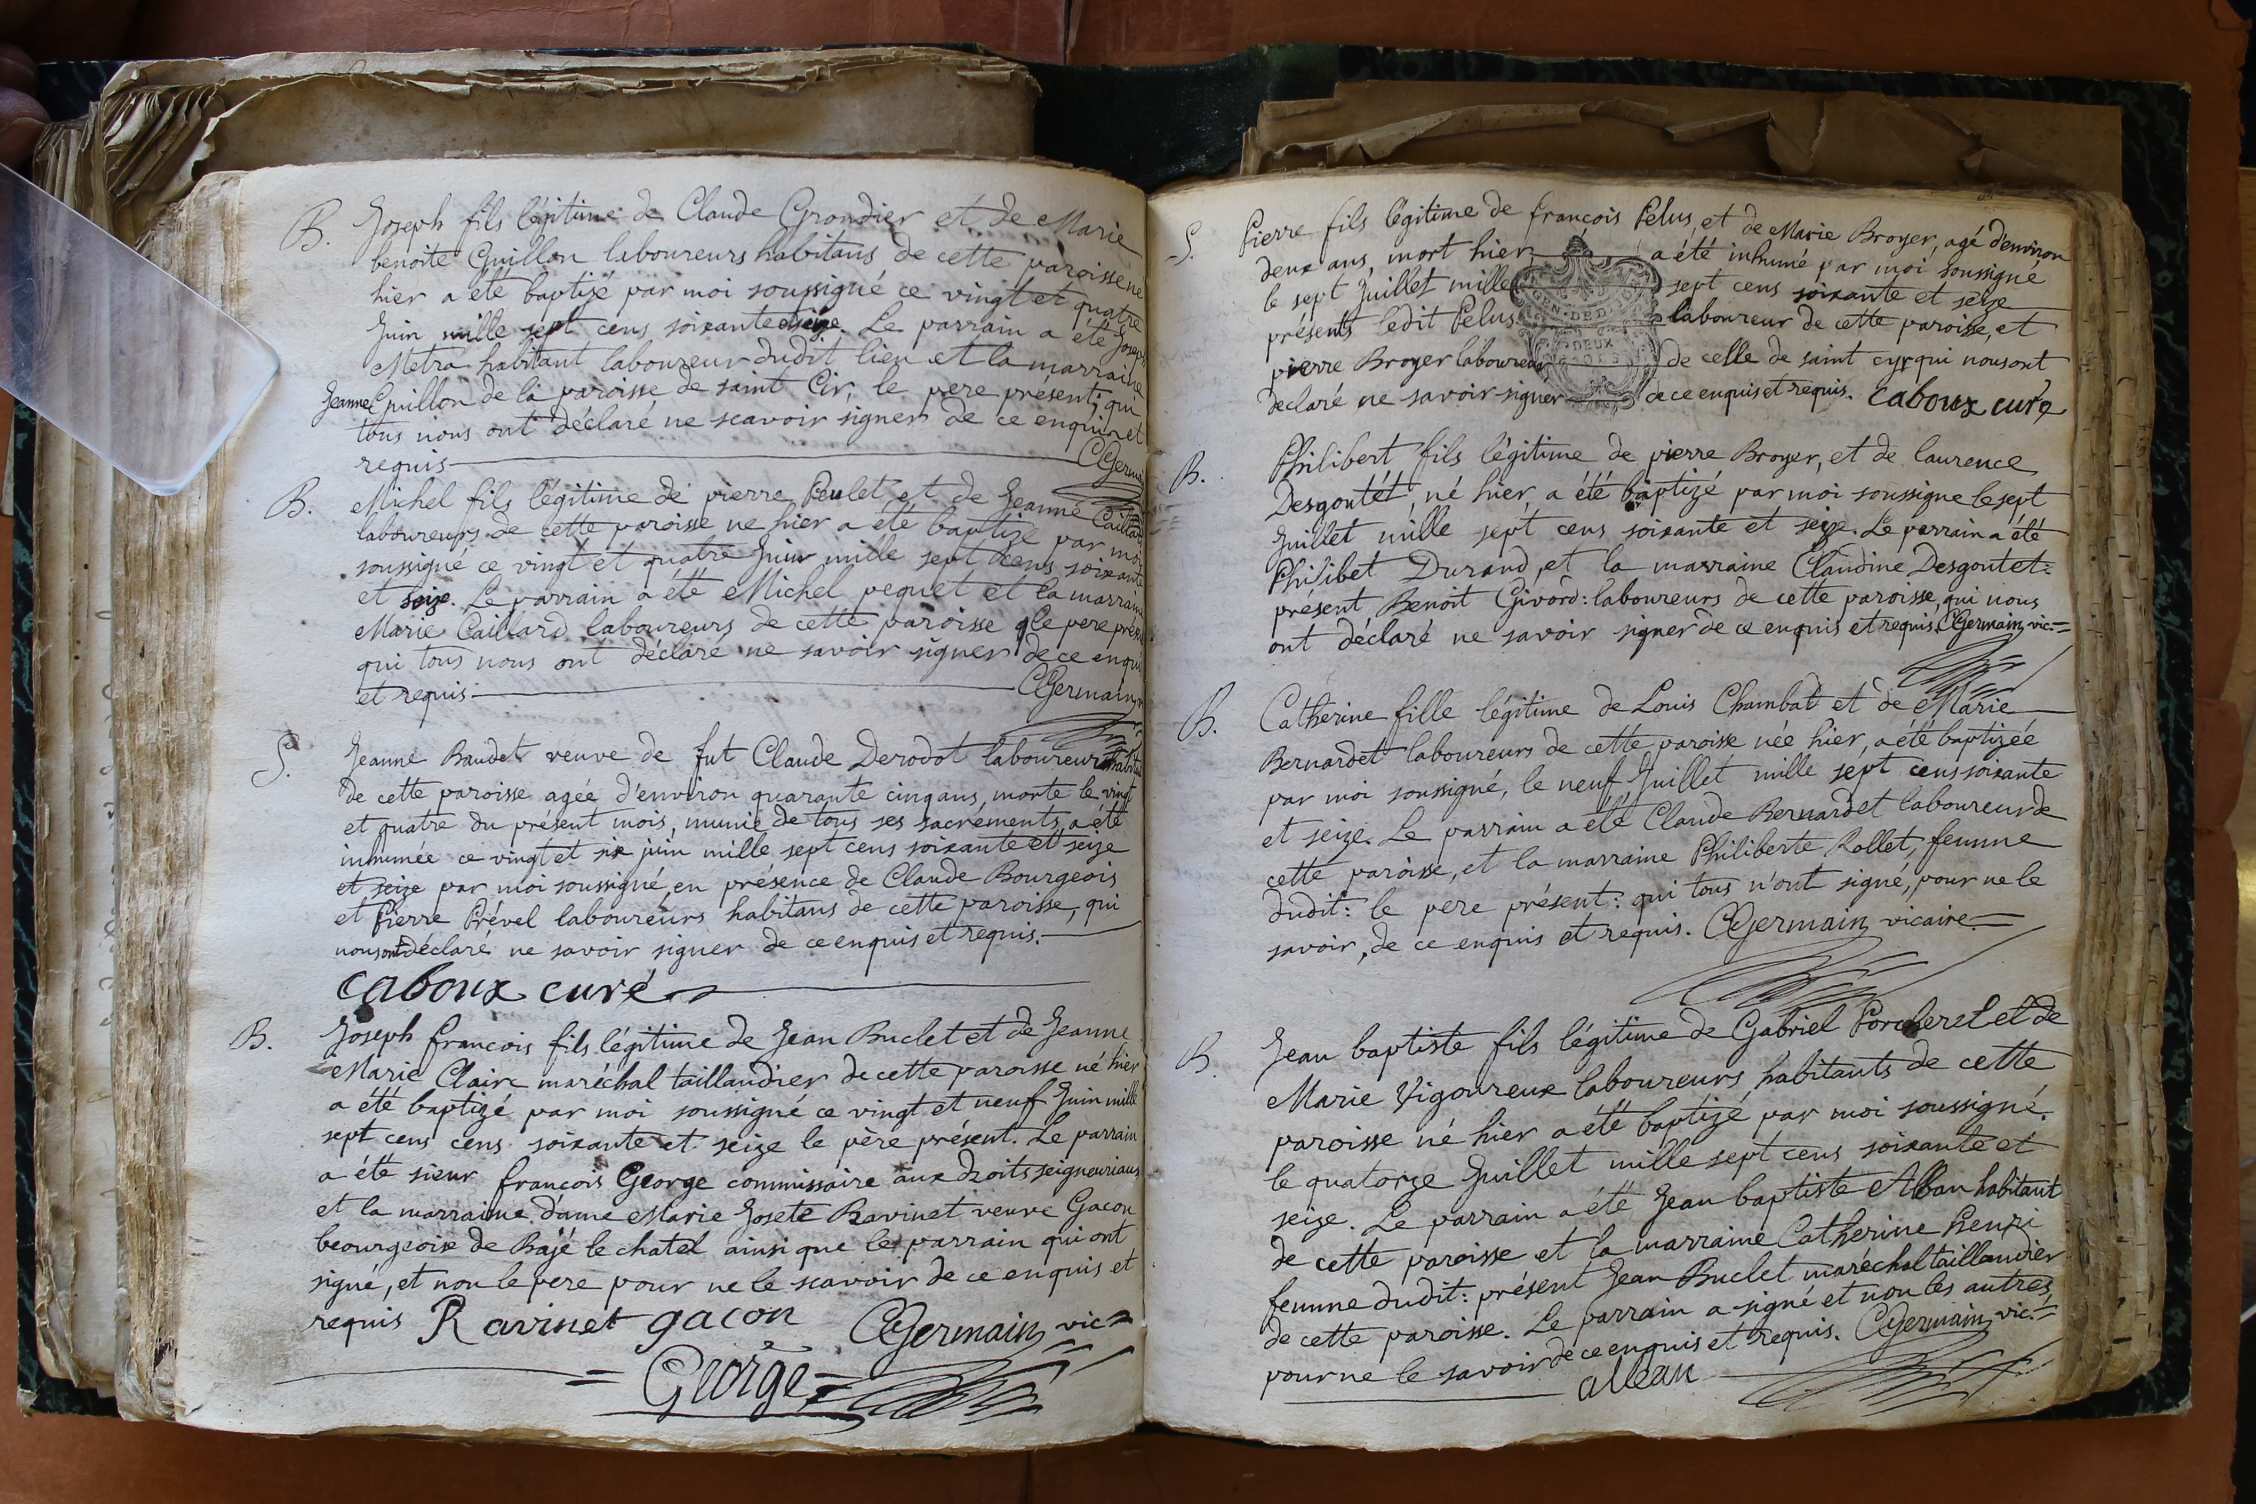 B. Joseph fils légitime de Claude Grondier et de Marie
benoite Guillon laboureurs habitans de cette paroisse né
hier a été baptizé par moi soussigné ce vingt et quatre
Juin mille sept cens soixante et seize. Le parrain a été Joseph
Metra habitant laboureur dudit lieu et la marraine
Jeanne Guillon de la paroisse de saint Cir, le pere présent; qui
tous nous ont déclaré ne scavoir signer de ce enquis et
requis CGermain
B. Michel fils légitime de pierre Peulet et de Jeanne Caillard
laboureurs de cette paroisse ne hier a été baptizé par moi
soussigné ce vingt et quatre Juin mille sept cens soixante
et seize. Le parrain a été Michel pequet et la marraine
Marie Caillard laboureurs de cette paroisse Le pere présent
qui tous nous ont déclaré ne savoir signer de ce enquis
et requis CGermain
S. Jeanne Baudet veuve de fut Claude Derodot laboureur habitant
de cette paroisse agée d'environ quarante cinq ans, morte le vingt
et quatre du présent mois, munie de tous ses sacrements, a été
inhumée ce vingt et six juin mille sept cens soixante et seize
et seize par moi soussigné, en présence de Claude Bourgeois
et Pierre Prével laboureurs habitans de cette paroisse, qui
nous ont déclaré ne savoir signer de ce enquis et requis.
Caboux curé
B. Joseph françois fils légitime de Jean Buclet et de Jeanne
Marie Claire maréchal taillandier de cette paroisse né hier
a été baptizé par moi soussigné ce vingt et neuf Juin mille
sept cens cens soixante et seize le père présent. Le parrain
a été sieur françois George commissaire aux droits seigneuriaux
et la marraine dame Marie Josete Ravinet veuve Gacon
beourgeoise de Bajé le chatel ainsi que le parrain qui ont
signé, et non le pere pour ne le scavoir de ce enquis et
requis Ravinet gacon CGermain vic.
George
S. Pierre fils légitime de françois Pelus, et de Marie Broyer, agé d'environ
deux ans, mort hier a été inhumé par moi soussigné
le sept Juillet mille sept cens soixante et seize
présents ledit Pelus laboureur de cette paroisse, et
pierre Broyer laboureur de celle de saint cyr qui nous ont
declaré ne savoir signer de ce enquis et requis. Caboux curé
DEUX
B. Philibert fils légitime de pierre Broyer, et de laurence
Desgoutét, né hier, a été baptizé par moi soussigne le sept
Juillet mille sept cens soixante et seize. Le parrain a été
Philibet Durand, et la marraine Claudine Desgoutet:
présent Benoit Givord: laboureurs de cette paroisse, qui nous
ont déclaré ne savoir signer de ce enquis et requis. CGermain vic.
B. Catherine fille légitime de Louis Chambat et de Marie
Bernardet laboureurs de cette paroisse née hier, a été baptizée
par moi soussigné, le neuf Juillet mille sept cens soixante
et seize. Le parrain a été Claude Bernardet laboureur de
cette paroisse, et la marraine Philiberte Rollet, femme
dudit: le pere présent: qui tous n'ont signé, pour ne le
savoir, de ce enquis et requis. CGermain vicaire
B. Jean baptiste fils légitime de Gabriel Porcherel et de
Marie Vigoureux laboureurs habitants de cette
paroisse né hier a été baptizé par moi soussigné.
le quatorze Juillet mille sept cens soixante et
seize. Le parrain a été Jean baptiste habitant
de cette paroisse et la marraine Catherine henri
femme dudit: présent Jean Buclet maréchal taillandier
de cette paroisse. Le parrain a signé et non les autres
pour ne le savoir de ce enquis et requis. CGermain vic.
alléan